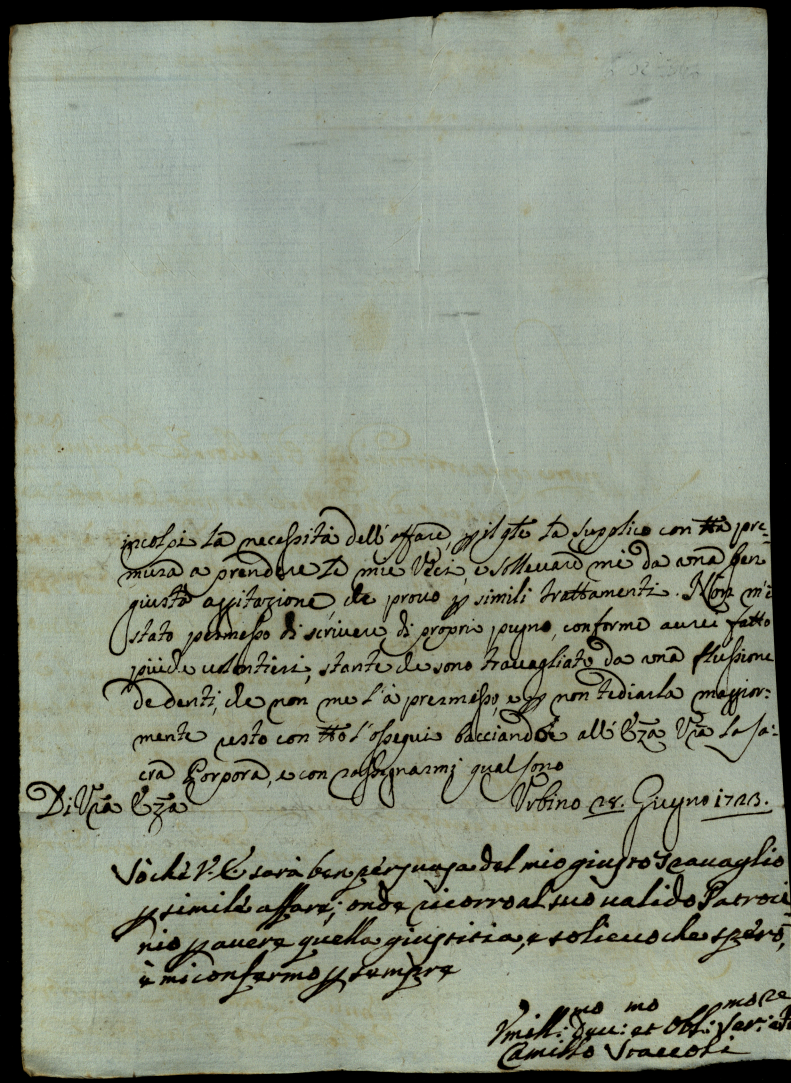 incolpi la necessità dell'affare, p il qle la supplico con tta pre=
mura a prendere le mie Veci, e sollevarmi da una ben
giusta aggitazione, che provo p simili trattamenti. Non m'è
stato permesso di scrivere di proprio pugno, conforme averei fatto
più che volontieri, stante che sono travagliato da una flussione
de denti, che non me l'à permesso, e p non tediarla maggior=
mente resto con tto l'ossequi bacciandole all'Eza Vra la Sa=
cra Porpora, e con rassegnarmi qual sono
Di Vra Eza Urbino 28. Giugno 1723.
Sò che V. E. sarà ben persuasa del mio giusto travaglio
p simile affare; onde ricorro al suo valido Patroci
nio p avere quella giustitia, e solievo che spero,
e mi confermo p sempre
Umill:mo Dev:mo et Obl:mo Ser:re
Camillo Staccoli